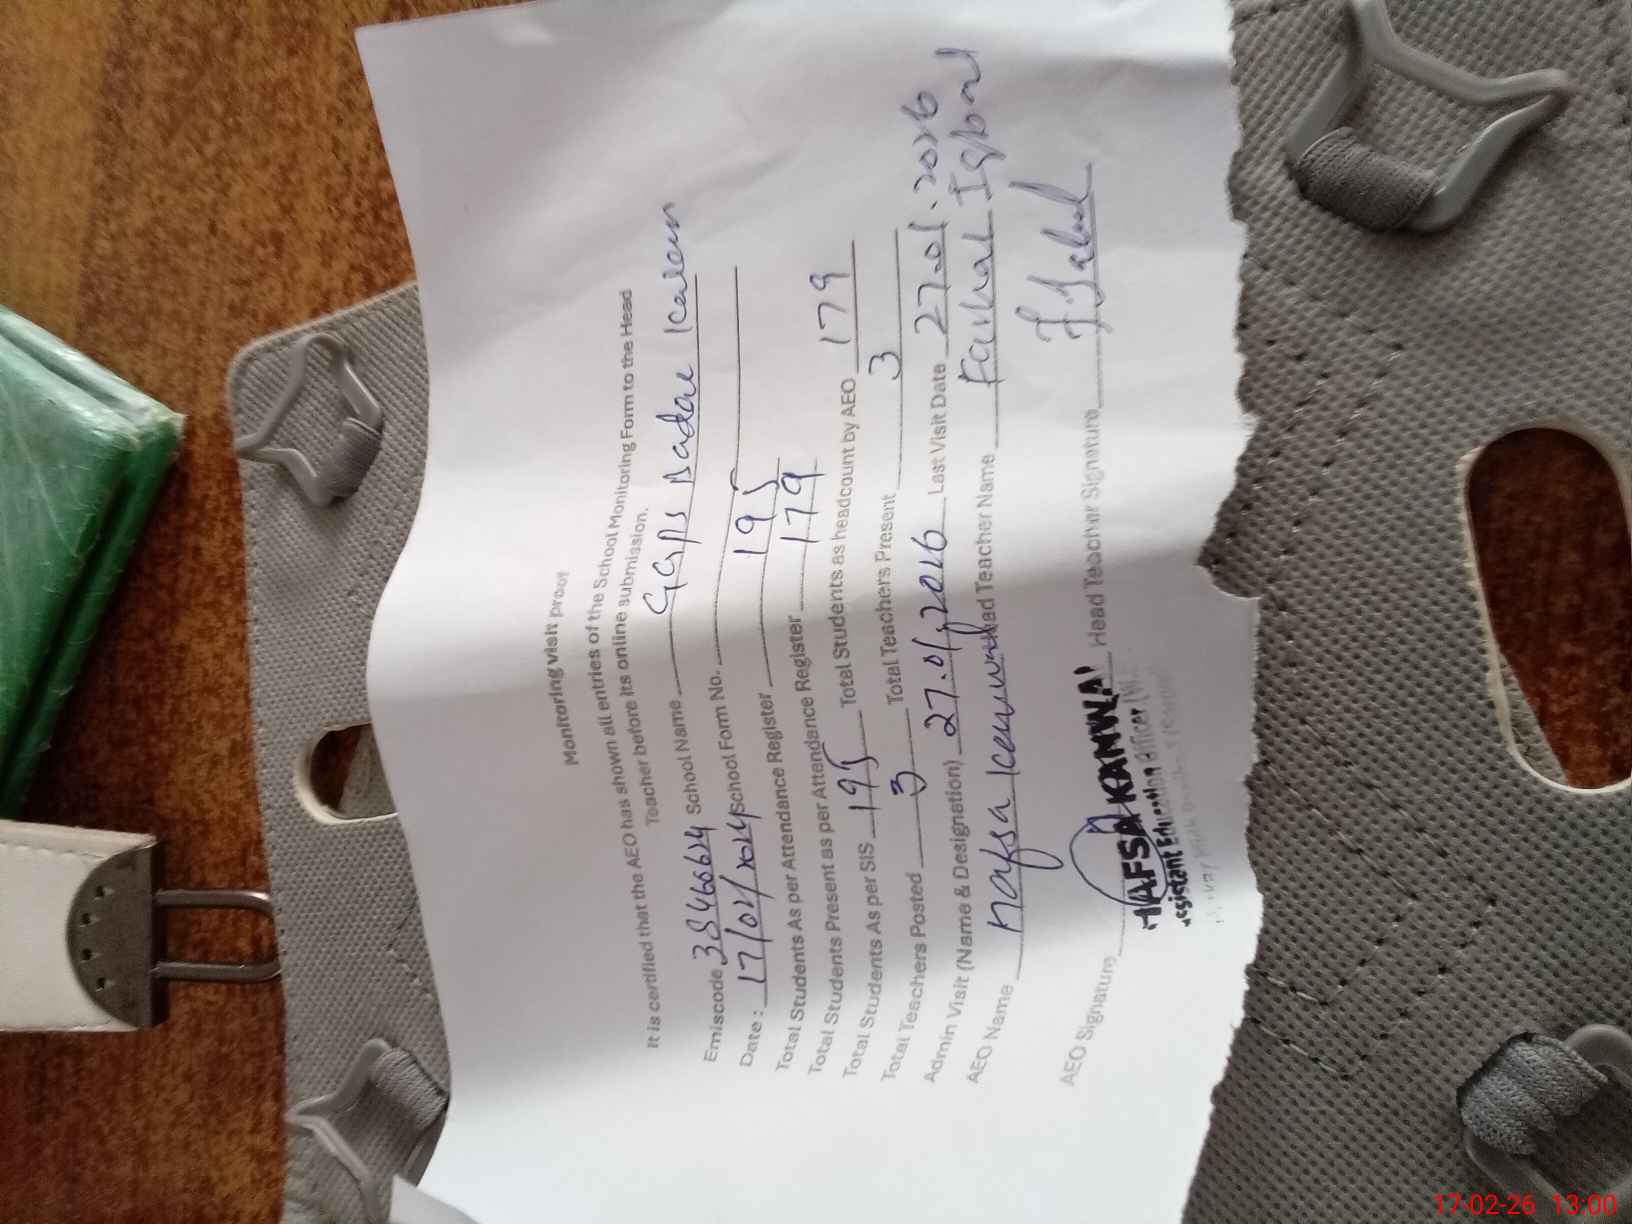 Monitoring visit proof
It is certified that the AEO has shown all entries of the School Monitoring Form to the Head
Teacher before its online submission.
Emiscode School Name GGPS
Date: School Form No.
Total Students As per Attendance Register 195
Total Students Present as per Attendance Register 179
Total Students As per SIS 195 Total Students as headcount by AEO 179
Total Teachers Posted 3 Total Teachers Present 3
Admin Visit (Name & Designation) 27.01.2026 Last Visit Date 27.01.2026
AEO Name Hafsa Kanwal Head Teacher Name Farhat Iqbal
AEO Signature Head Teacher Signature
HAFSA KANWAL
Assistant Education Officer
17-02-26 13:00